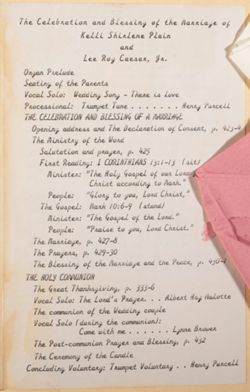 The Celebration and Blessing of the Marriage of
Kelli Shirlene Plain
and
Lee Roy Caesar, Jr.
Organ Prelude
Seating of the Parents
Vocal Solo: Wedding Song - There is love
Processional: Trumpet Tune . . . . . . . . Henry Purcell
THE CELEBRATION AND BLESSING OF A MARRIAGE
Opening address and The Declaration of Consent, p. 423-4
The Ministry of the Word
Salutation and prayer, p. 425
First Reading: I CORINTHIANS 13:1-13 (sit)
Minister: "The Holy Gospel of our Lord
Christ according to Mark."
People: "Glory to you, Lord Christ,"
The Gospel: Mark 10:6-9 (stand)
Minister: "The Gospel of the Lord."
People: "Praise to you, Lord Christ."
The Marriage, p. 427-8
The Prayers, p. 429-30
The Blessing of the Marriage and the Peace, p. 430-1
THE HOLY COMMUNION
The Great Thanksgiving, p. 333-6
Vocal Solo: The Lord's Prayer. . . Albert Hay Malotte
The communion of the Wedding couple
Vocal Solo (during the communion):
Come with me . . . . . . . Lynne Brower
The Post-communion Prayer and Blessing, p. 432
The Ceremony of the Candle
Concluding Voluntary: Trumpet Voluntary . . Henry Purcell